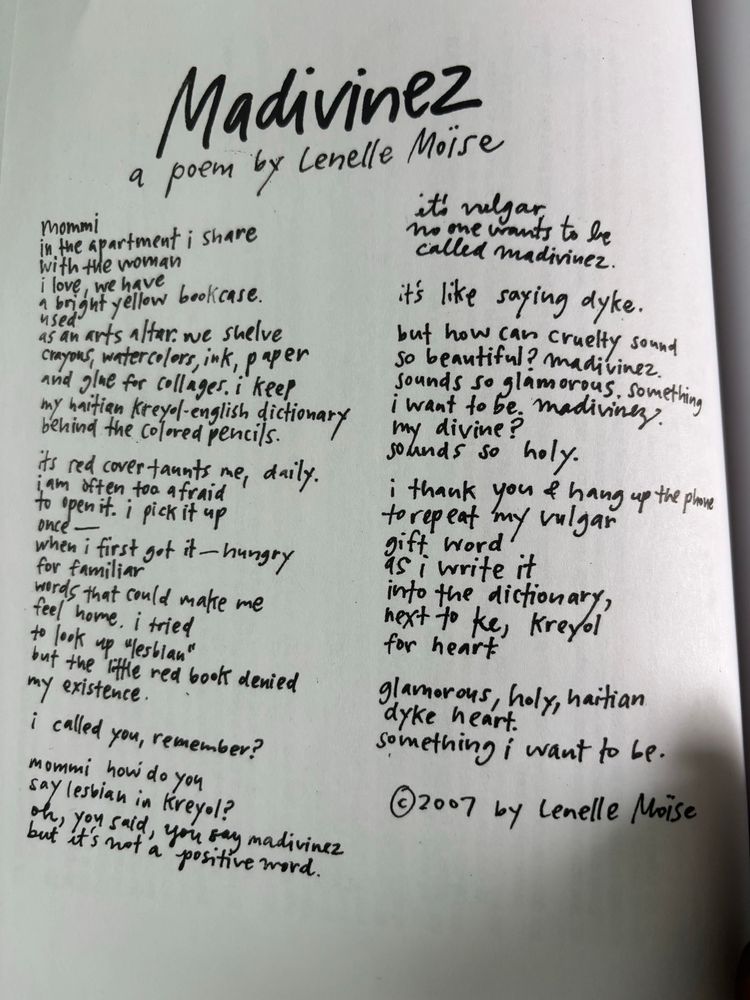 Madivinez
a poem by Lenelle Moïse
mommi
in the apartment i share
with the woman
i love, we have
a bright yellow bookcase.
used
as an arts altar. we shelve
crayons, watercolors, ink, paper
and glue for collages. i keep
my haitian kreyol-english dictionary
behind the colored pencils.
its red cover taunts me, daily.
i am often too afraid
to open it. i pick it up
once —
when i first got it — hungry
for familiar
words that could make me
feel home. i tried
to look up "lesbian"
but the little red book denied
my existence.
i called you, remember?
mommi how do you
say lesbian in kreyol?
oh, you said, you say madivinez
but it's not a positive word.
it's vulgar
no one wants to be
called madivinez.
it's like saying dyke.
but how can cruelty sound
so beautiful? madivinez.
sounds so glamorous. something
i want to be. madivinez.
my divine?
sounds so holy.
i thank you & hang up the phone
to repeat my vulgar
gift word
as i write it
into the dictionary,
next to ke, kreyol
for heart
glamorous, holy, haitian
dyke heart.
something i want to be.
©2007 by Lenelle Moïse